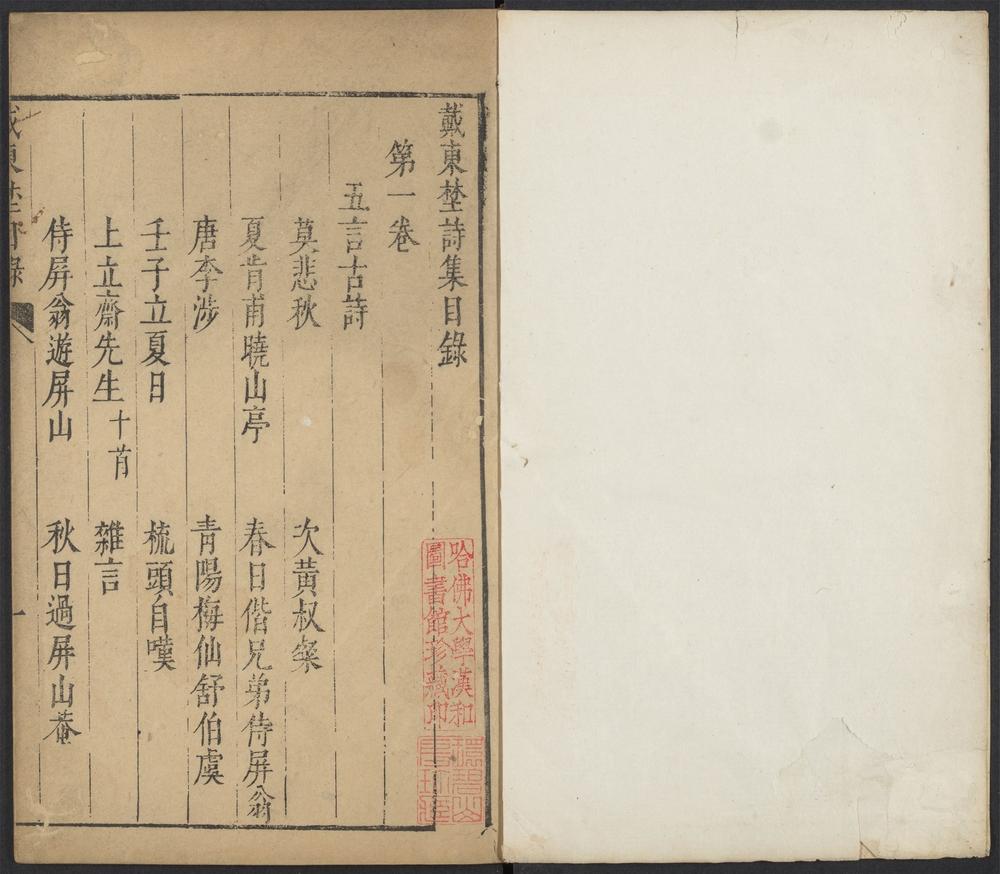 戴東埜詩集目錄
第一卷
五言古詩
莫悲秋　次黃叔粲
夏肯甫曉山亭　春日偕兄弟侍屏翁
唐李涉　青陽梅仙舒伯虞
壬子立夏日　梳頭自嘆
上立齋先生十首　雜言
侍屏翁遊屏山　秋日過屏山菴
一
哈佛大學漢和
圖書館珍藏印